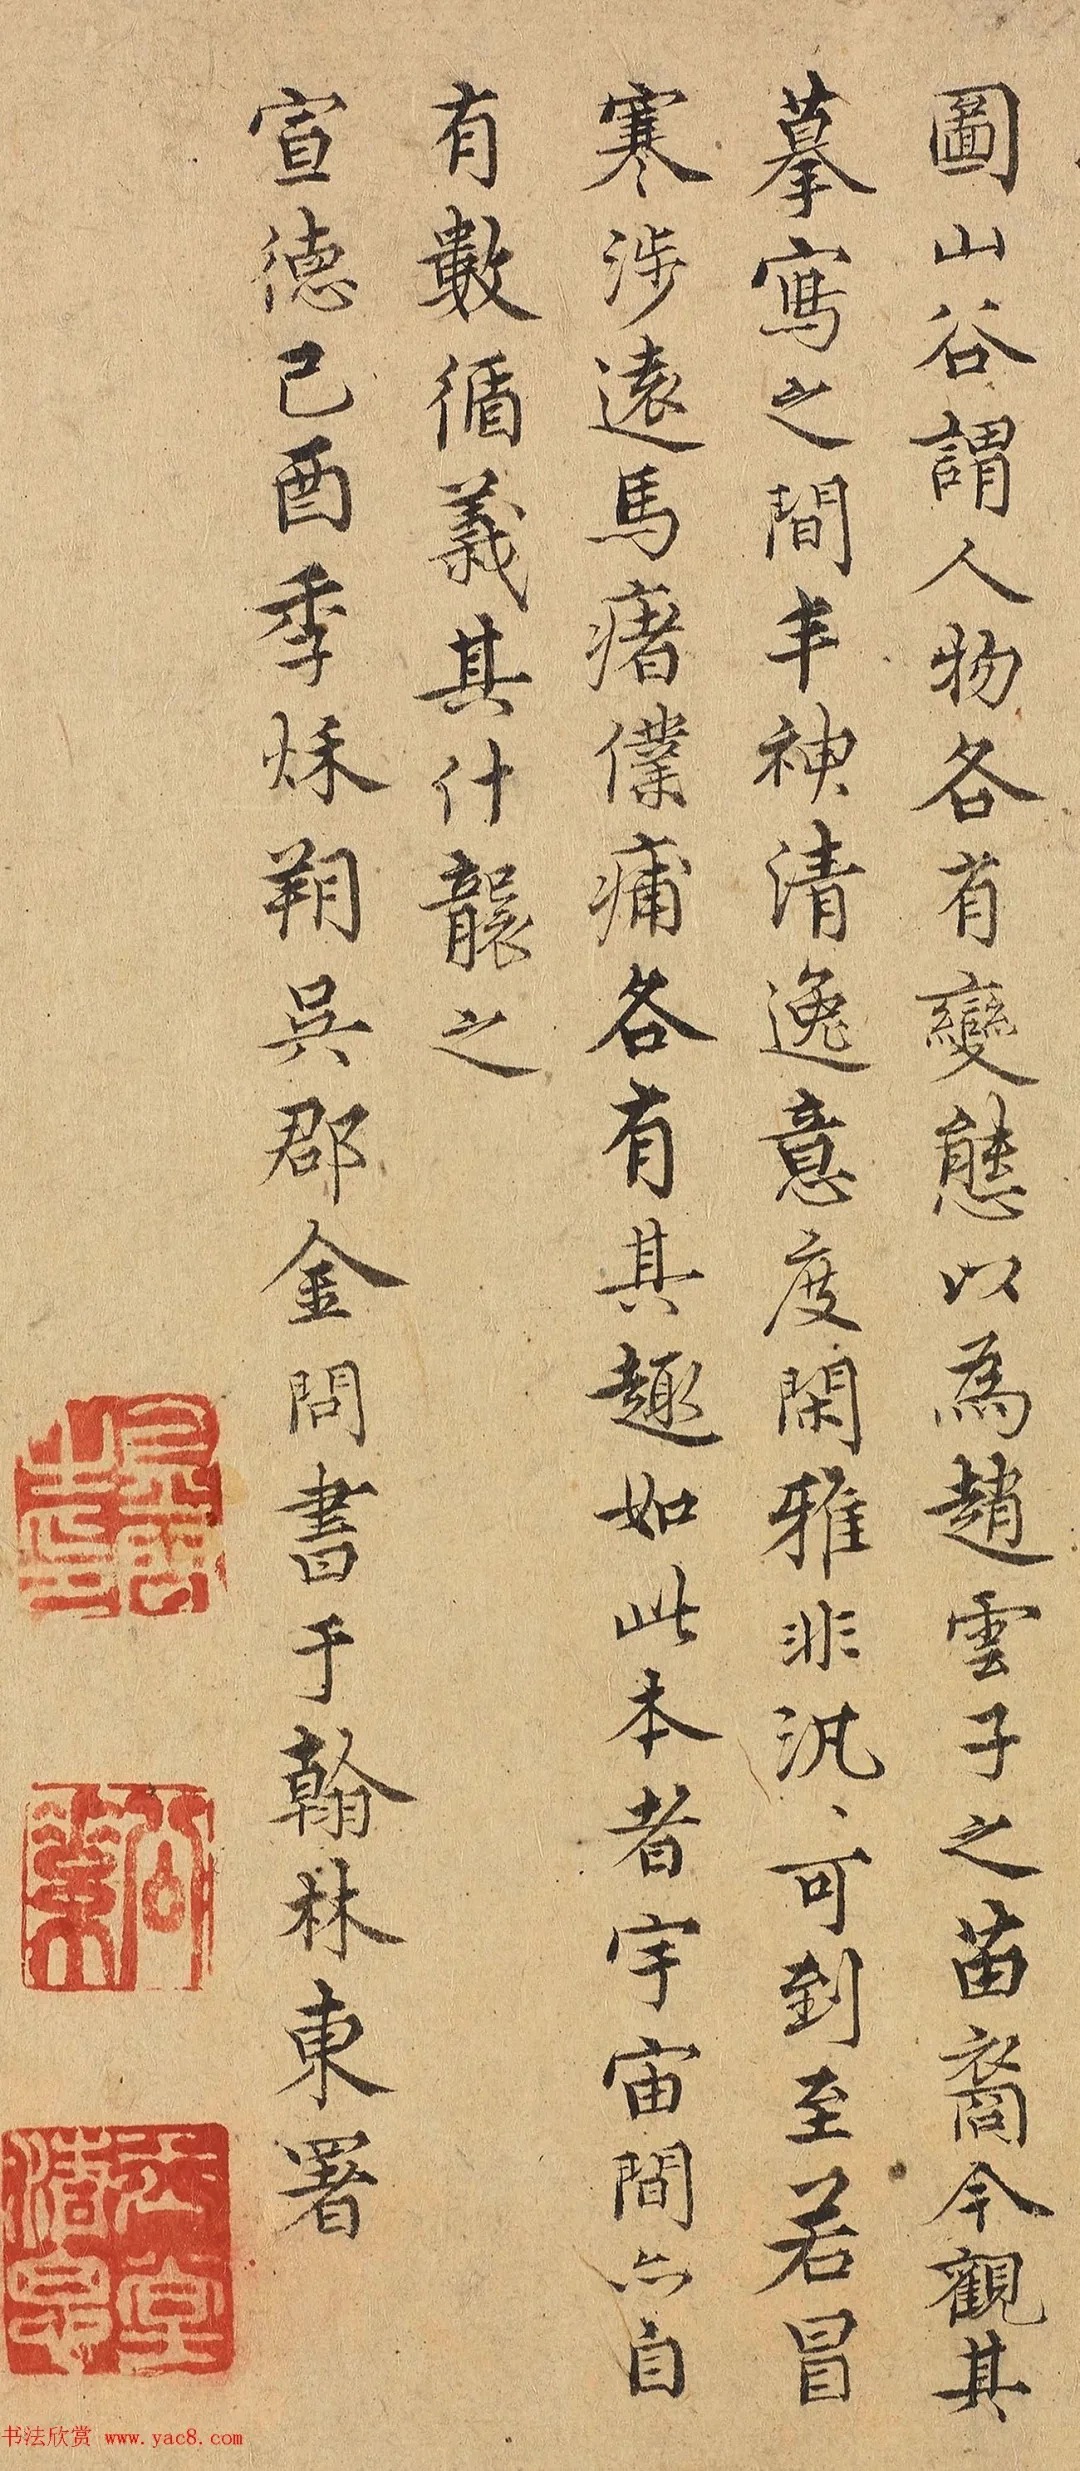 圖山谷謂人物各有變態以為趙雲子之苗裔今觀其
摹寫之間丰神清逸意度閑雅非汎、可到至若冒
寒涉遠馬瘏僕痡各有其趣如此本者宇宙間亦自
有數循義其什襲之
宣德己酉季秌朔吳郡金問書于翰林東署
書法欣赏 www.yac8.com